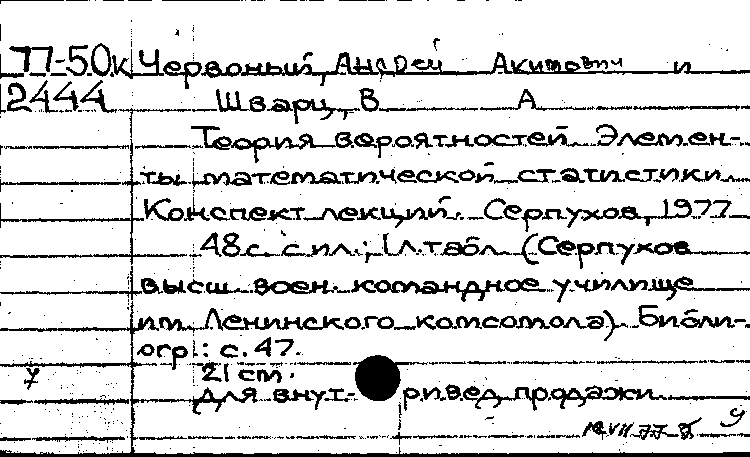 77-50к Червоный, Андрей Акимович и
2444 Шварц, В А
Теория вероятностей. Элемен-
ты математической статистики.
Конспект лекций. Серпухов, 1977
48с. с ил.; 1л.табл. (Серпухов
высш. воен. командное училище
им. Ленинского комсомола). Библи-
огр.: с. 47.
21 cm.
Для внут- ривед. продажи